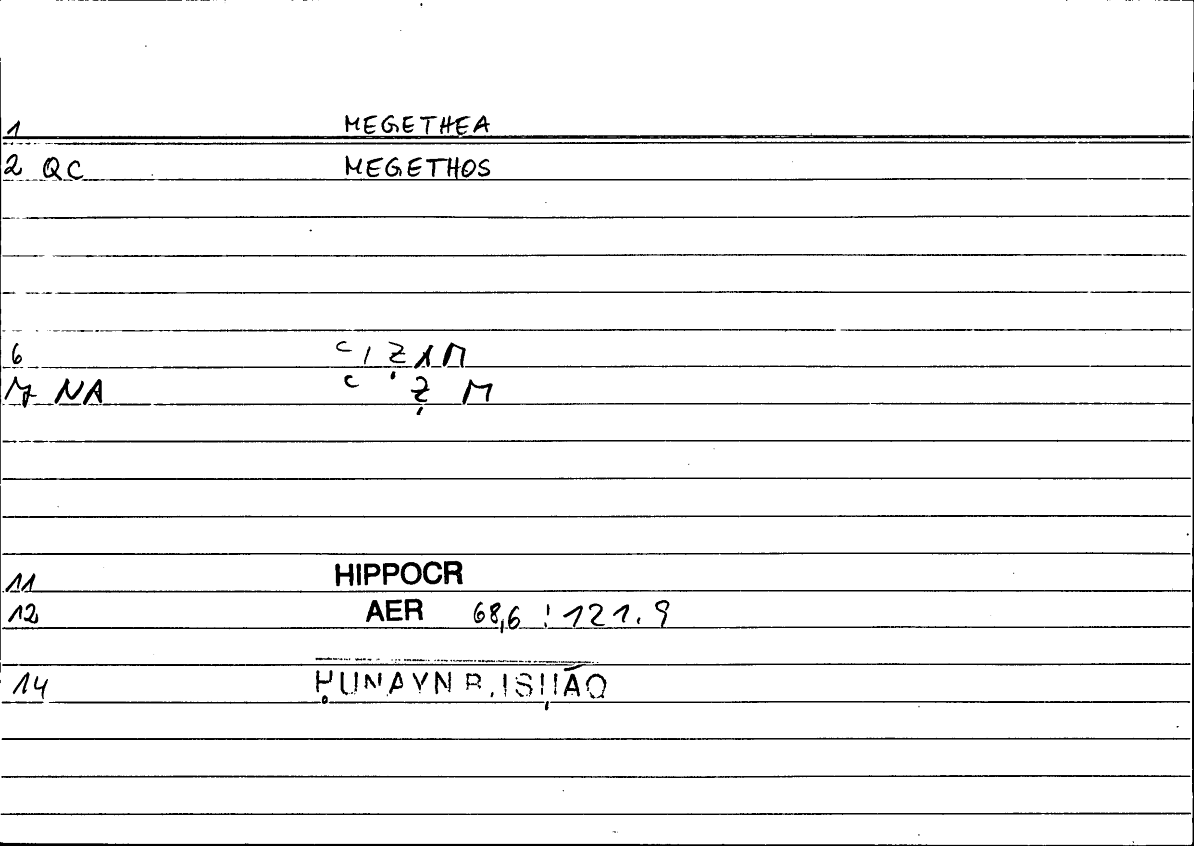 1 MEGETHEA
2 QC MEGETHOS
6 ʿIẒAM
7 NA ʿẒM
11 HIPPOCR
12 AER 68,6 : 121.9
14 ḤUNAYN B. ISḤĀQ